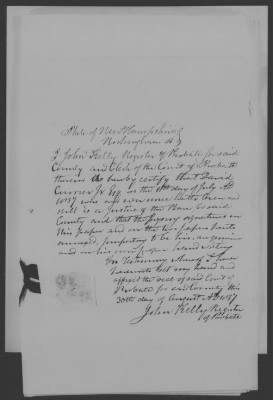 State of New Hampshire
Rockingham ss
I John Kelly Register of Probate for said
County and Clerk of the Court of Probate
therein do hereby certify that David
Currier Jr Esq on the day of July AD
1837 was and ever since hath been and
still is a Justice of the Peace in said
County and that the signatures on
this paper and on the two papers hereto
annexed, purporting to be his, are genuine
and in his own proper hand writing
In Testimony whereof I have
hereunto set my hand and
affixed the seal of said Court of
Probate for said County this
30th day of August AD 1837
John Kelly Register
of Probate